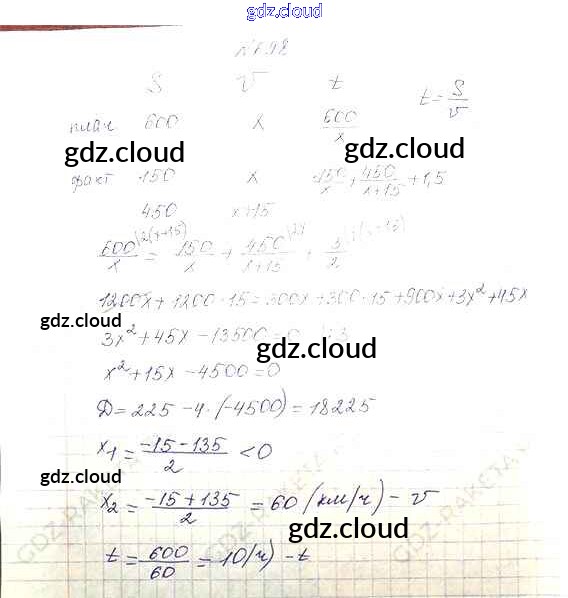 gdz.cloud
№698
S v t
t = S/v
план 600 x 600/x
gdz.cloud gdz.cloud
факт 150 x 150/x + 450/(x+15) + 1,5
450 x+15
600/x = 150/x + 450/(x+15) + 3/2
1200x + 1200·15 = 300x + 300·15 + 900x + 3x² + 45x
gdz.cloud
3x² + 45x - 13500 = 0 |:3
gdz.cloud
x² + 15x - 4500 = 0
Д = 225 - 4·(-4500) = 18225
x₁ = (-15-135)/2 < 0
gdz.cloud
x₂ = (-15+135)/2 = 60 (км/ч) - v
gdz.cloud
t = 600/60 = 10(ч) - t
GDZ-RAKETA